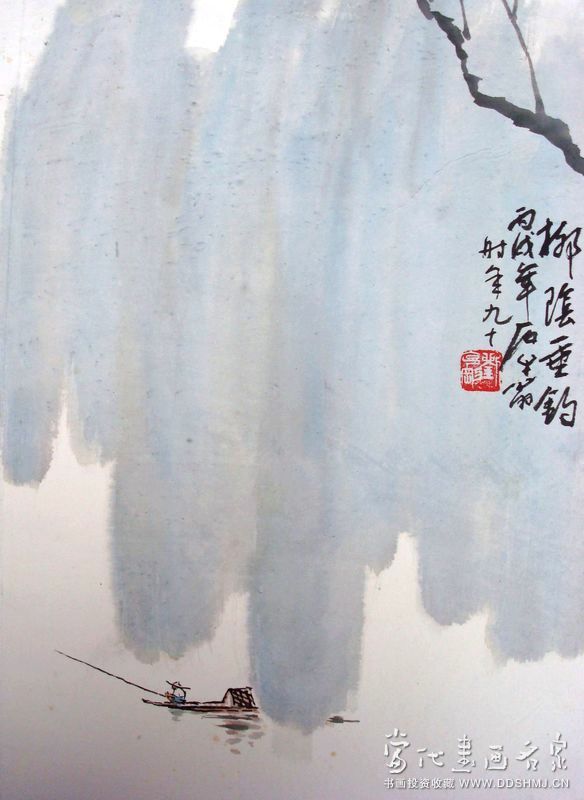 柳陰垂釣
丙戌年石生翁
时年九十
当代書画名家
书画投资收藏 WWW.DDSHMJ.CN